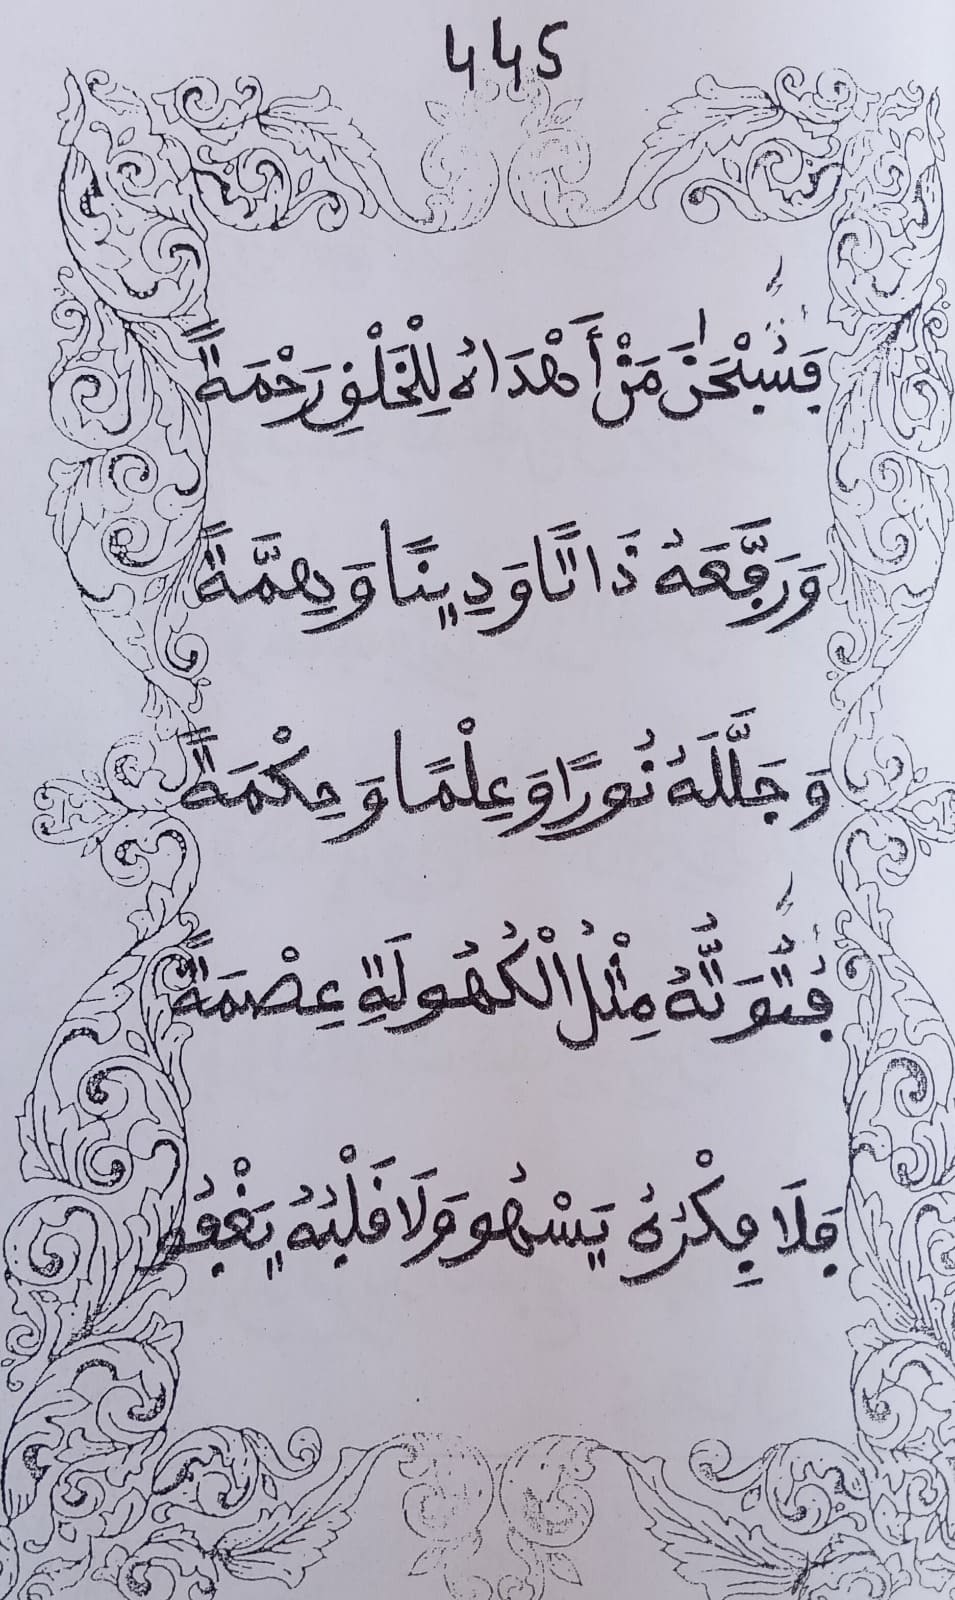 445
فَسُبْحَٰنَ مَنْ أَهْدَاهُ لِلْخَلْقِ رَحْمَةً
وَرَفَّعَهُ ذَاتًا وَدِينًا وَهِمَّةً
وَجَلَّلَهُ نُورًا وَعِلْمًا وَحِكْمَةً
فُتُوَّتُهُ مِثْلُ الْكُهُولَةِ عِصْمَةً
فَلَا فِكْرُهُ يَسْهُو وَلَا قَلْبُهُ يَغْفُو